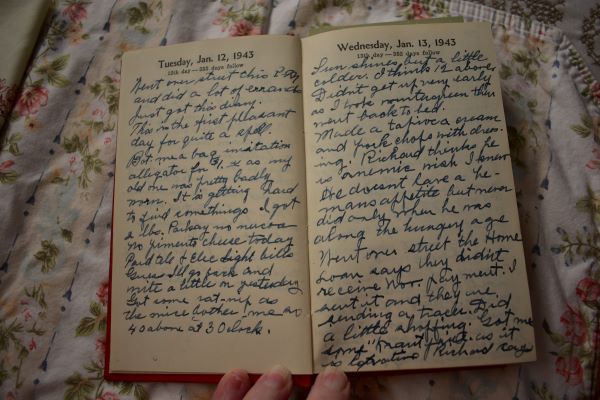 Tuesday, Jan. 12, 1943
12th day—353 days follow
Went over street this P.M.
and did a lot of errands
Just got this diary.
This is the first pleasant
day for quite a spell.
Got me a bag imitation
alligator for as my
old one was pretty badly
worn. It is getting hard
to find somethings. I got
2 lbs. Parkay no nucoa
no pimento cheese today
Paid tel & Elec light bills
Guess I'll go back and
write a little on yesterday
Got some rat-nip as
the mice bother me so
40 above at 3 Oclock.
Wednesday, Jan. 13, 1943
13th day—352 days follow
Sun shines but a little
colder. I think 12 above
Didn't get up very early
as I took wintergreen then
went back to bed.
Made a tapioca cream
and pork chops with dress-
ing. Richard thinks he
is anemic wish I knew
He doesn't have a he-
mans appetite but never
did only when he was
along the hungry age
Went over street the Home
Loan says they didn't
receive Nov. payment. I
sent it and they are
sending a tracer. Did
a little shopping. Got me
some as it
is Richard says